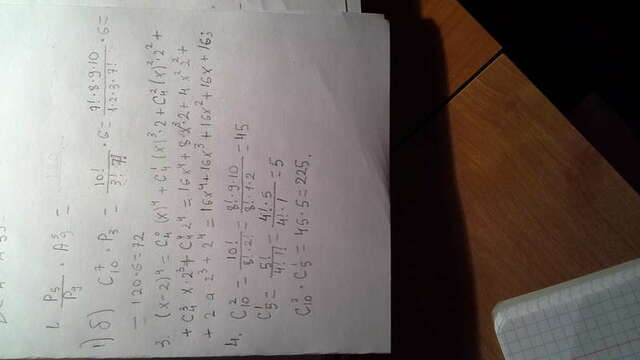 1. P₅/P₉ · A₉⁵ =
1) б) C₁₀⁷ · P₃ = 10!/(3! 7!) · 6 = (7! · 8 · 9 · 10)/(1 · 2 · 3 · 7!) · 6 =
= 120 · 6 = 72
3. (x - 2)⁴ = C₄⁰ (x)⁴ + C₄¹ (x)³ · 2 + C₄² (x)² · 2² +
+ C₄³ x · 2³ + C₄⁴ 2⁴ = 16x⁴ + 8 x³ 2 + 4 x² 2² +
+ 2 a 2³ + 2⁴ = 16x⁴ + 16x³ + 16x² + 16x + 16;
4. C₁₀² = 10!/(8! · 2!) = (8! · 9 · 10)/(8! · 1 · 2) = 45
C₅¹ = 5!/(4! 1!) = (4! · 5)/(4! · 1) = 5
C₁₀³ · C₅¹ = 45 · 5 = 225.